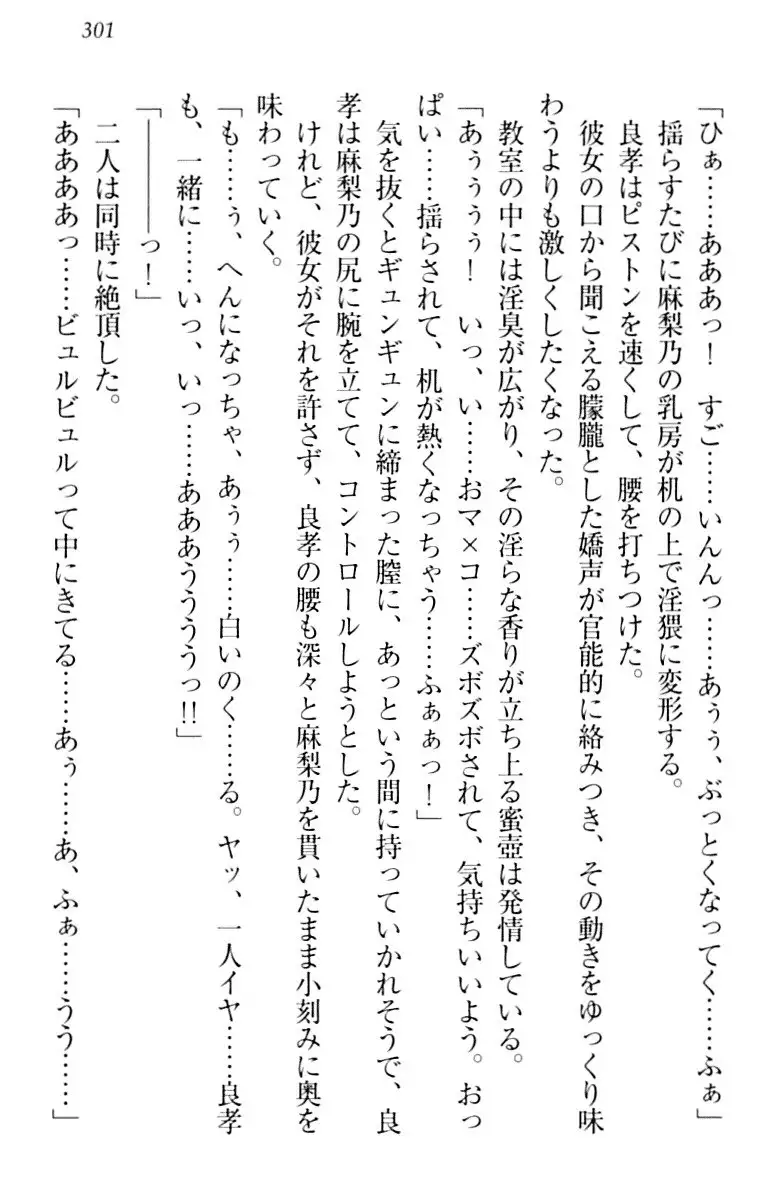 301
「ひぁ……あああっ！　すご……いんんっ……あぅぅ、ぶっとくなってく……ふぁ」
揺らすたびに麻梨乃の乳房が机の上で淫猥に変形する。
良孝はピストンを速くして、腰を打ちつけた。
彼女の口から聞こえる朦朧とした嬌声が官能的に絡みつき、その動きをゆっくり味
わうよりも激しくしたくなった。
教室の中には淫臭が広がり、その淫らな香りが立ち上る蜜壺は発情している。
「あぅぅぅぅ！　いっ、い……おマ×コ……ズボズボされて、気持ちいいよう。おっ
ぱい……揺らされて、机が熱くなっちゃう……ふぁぁっ！」
気を抜くとギュンギュンに締まった膣に、あっという間に持っていかれそうで、良
孝は麻梨乃の尻に腕を立てて、コントロールしようとした。
けれど、彼女がそれを許さず、良孝の腰も深々と麻梨乃を貫いたまま小刻みに奥を
味わっていく。
「も……ぅ、へんになっちゃ、あぅぅ……白いのく……る。ヤッ、一人イヤ……良孝
も、一緒に……いっ、いっ……あああうううっ!!」
「――――っ！」
二人は同時に絶頂した。
「ああああっ……ビュルビュルって中にきてる……あぅ……あ、ふぁ……うう……」